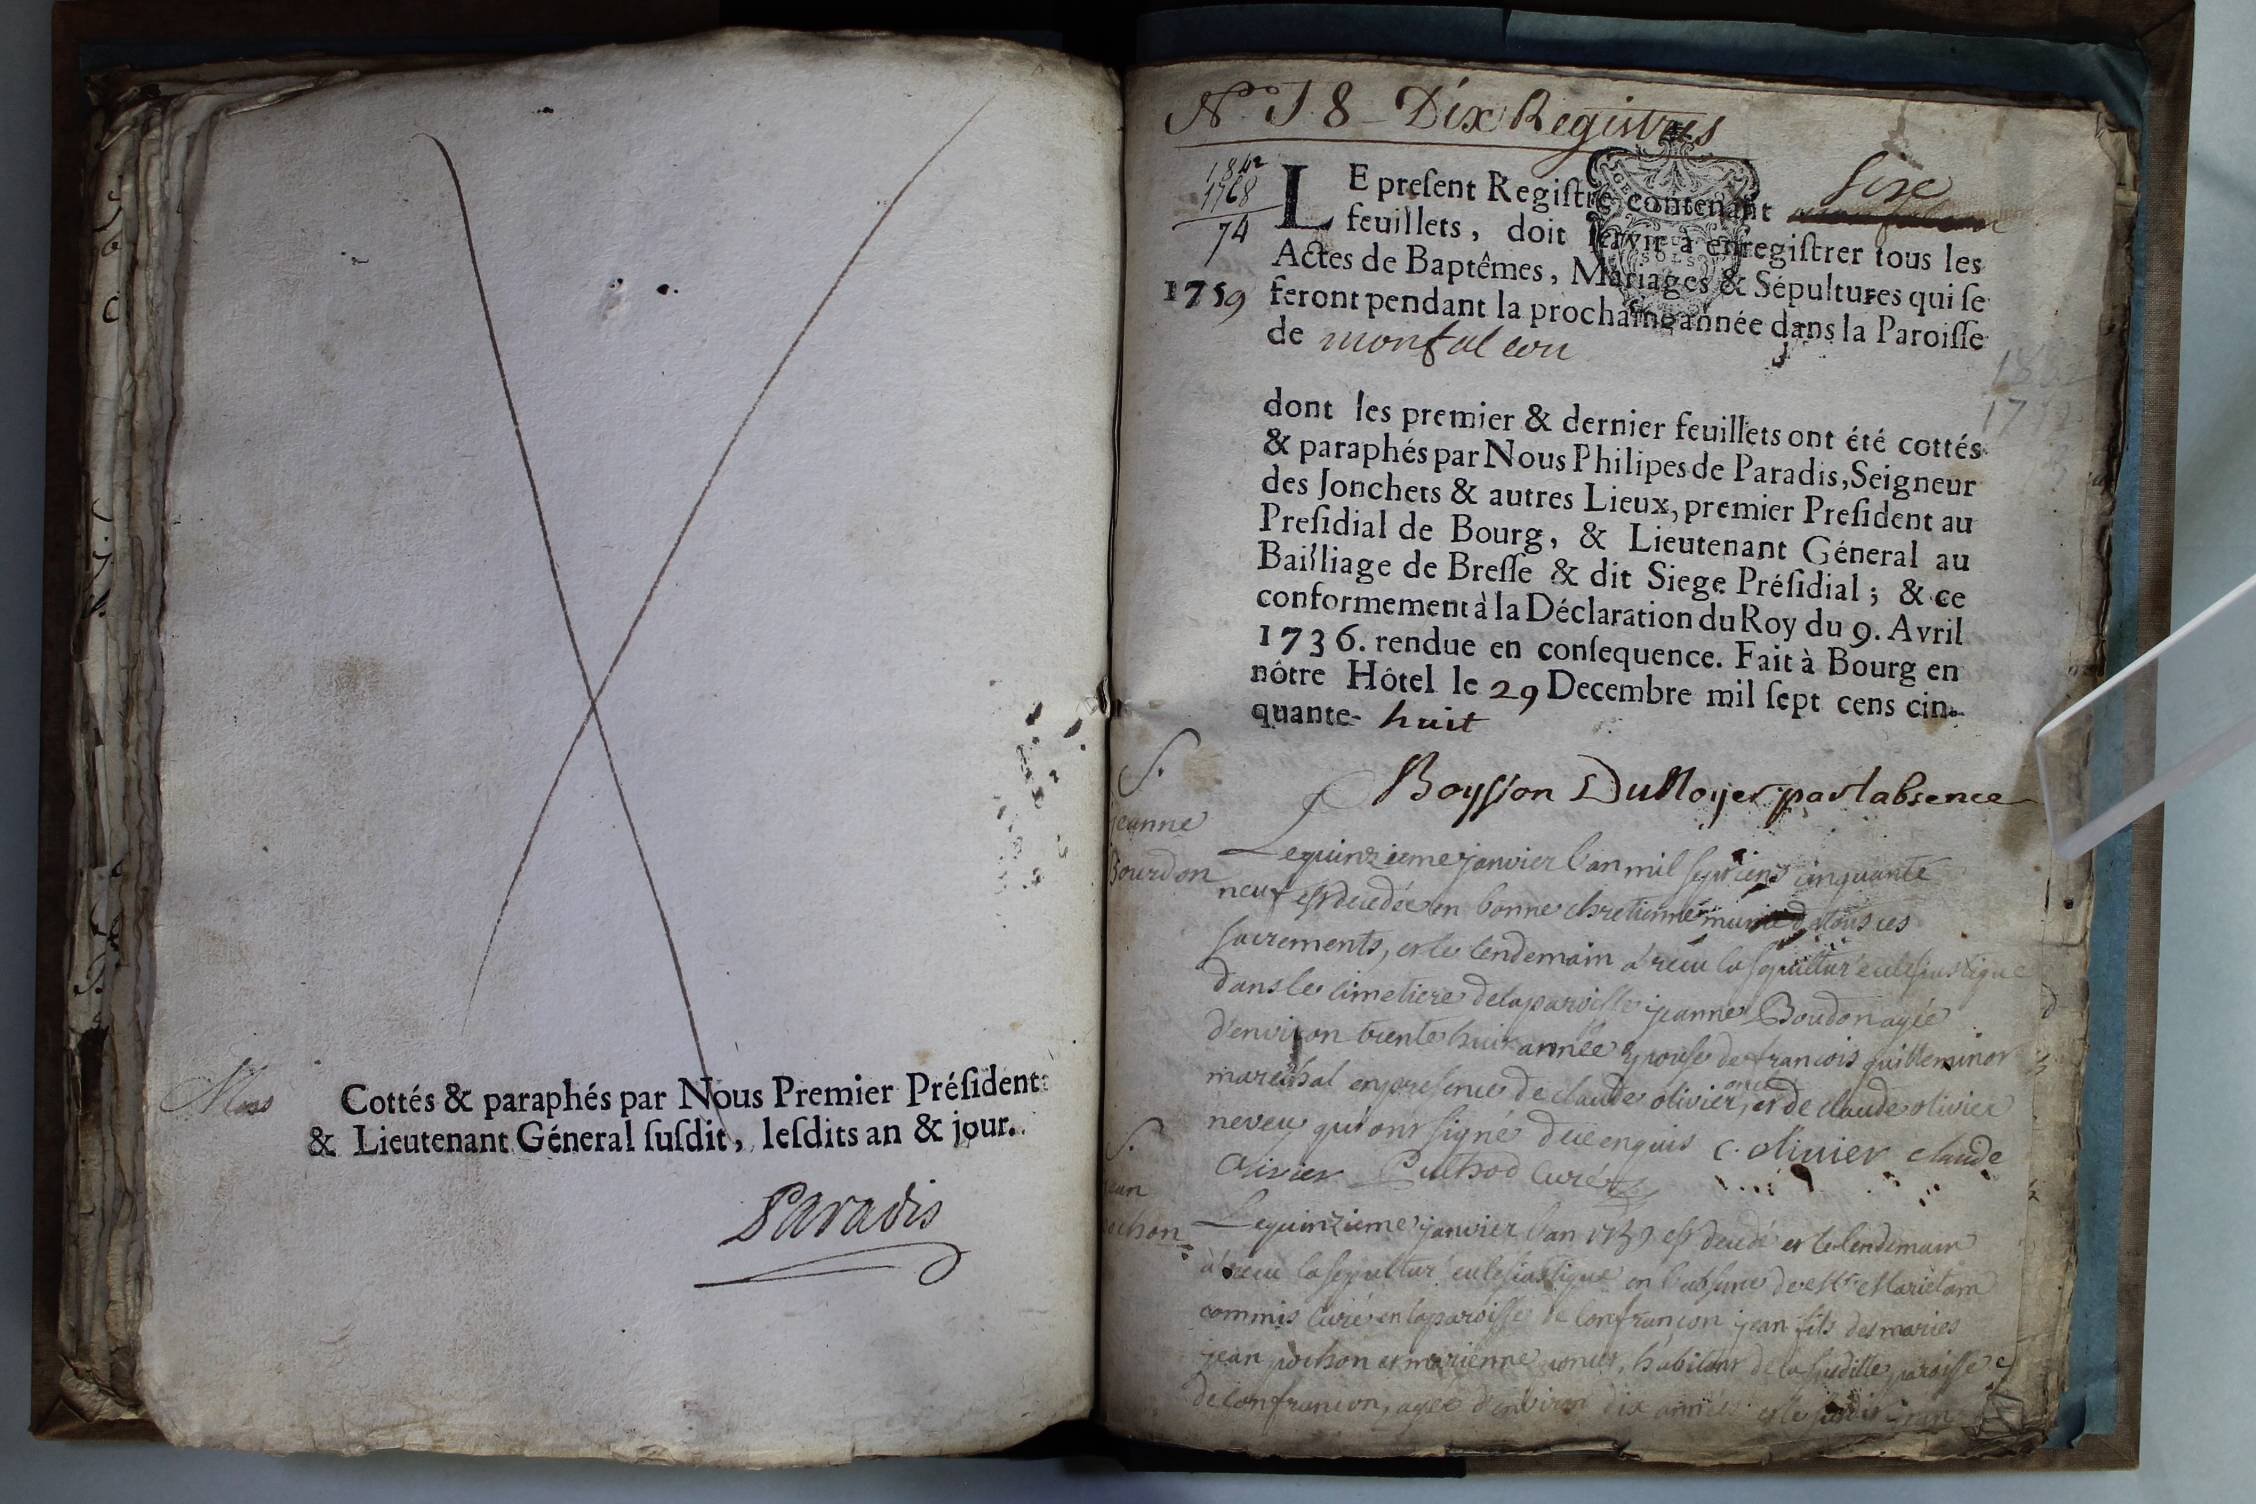 Cottés & paraphés par Nous Premier Préſident
& Lieutenant Géneral ſuſdit, leſdits an & jour.
Paradis
N.º 18 Dix Registres
1842
1768
74
LE preſent Regiſtre contenant Sixe
feuillets, doit ſervir à enregiſtrer tous les
Actes de Baptêmes, Mariages & Sépultures qui ſe
1759 feront pendant la prochaine année dans la Paroiſſe
de monfalcon
dont les premier & dernier feuillets ont été cottés
& paraphés par Nous Philipes de Paradis, Seigneur
des Jonchets & autres Lieux, premier Preſident au
Preſidial de Bourg, & Lieutenant Géneral au
Bailliage de Breſſe & dit Siege Préſidial ; & ce
conformement à la Déclaration du Roy du 9. Avril
1736. rendue en conſequence. Fait à Bourg en
nôtre Hôtel le 29 Decembre mil ſept cens cin-
quante- huit
Boysson DuNoyer par labsence
S.
jeanne
Bourdon
Le quinzieme janvier l'an mil sept cens cinquante
neuf est decedée en bonne chretienne munie de tous ces
sacrements, et le lendemain a reçu la sepulture eclesiastique
dans le cimetiere de la paroisse jeanne Boudon agée
d'environ trente huit année epouse de francois guilleminot
marechal en presence de claude olivier, et de claude olivier
oncle
neveu qui ont signé de ce enquis c. olivier claude
Olivier Puthod Curé
S.
jean
pochon
Le quinzieme janvier l'an 1759 est decedé et le lendemain
a reçu la sepulture eclesiastique en l'absence de
commis curé en la paroisse de Confrançon jean fils des maries
jean pochon et marienne habitant de la susditte paroisse
de Confrancon, agée d'environ dix années